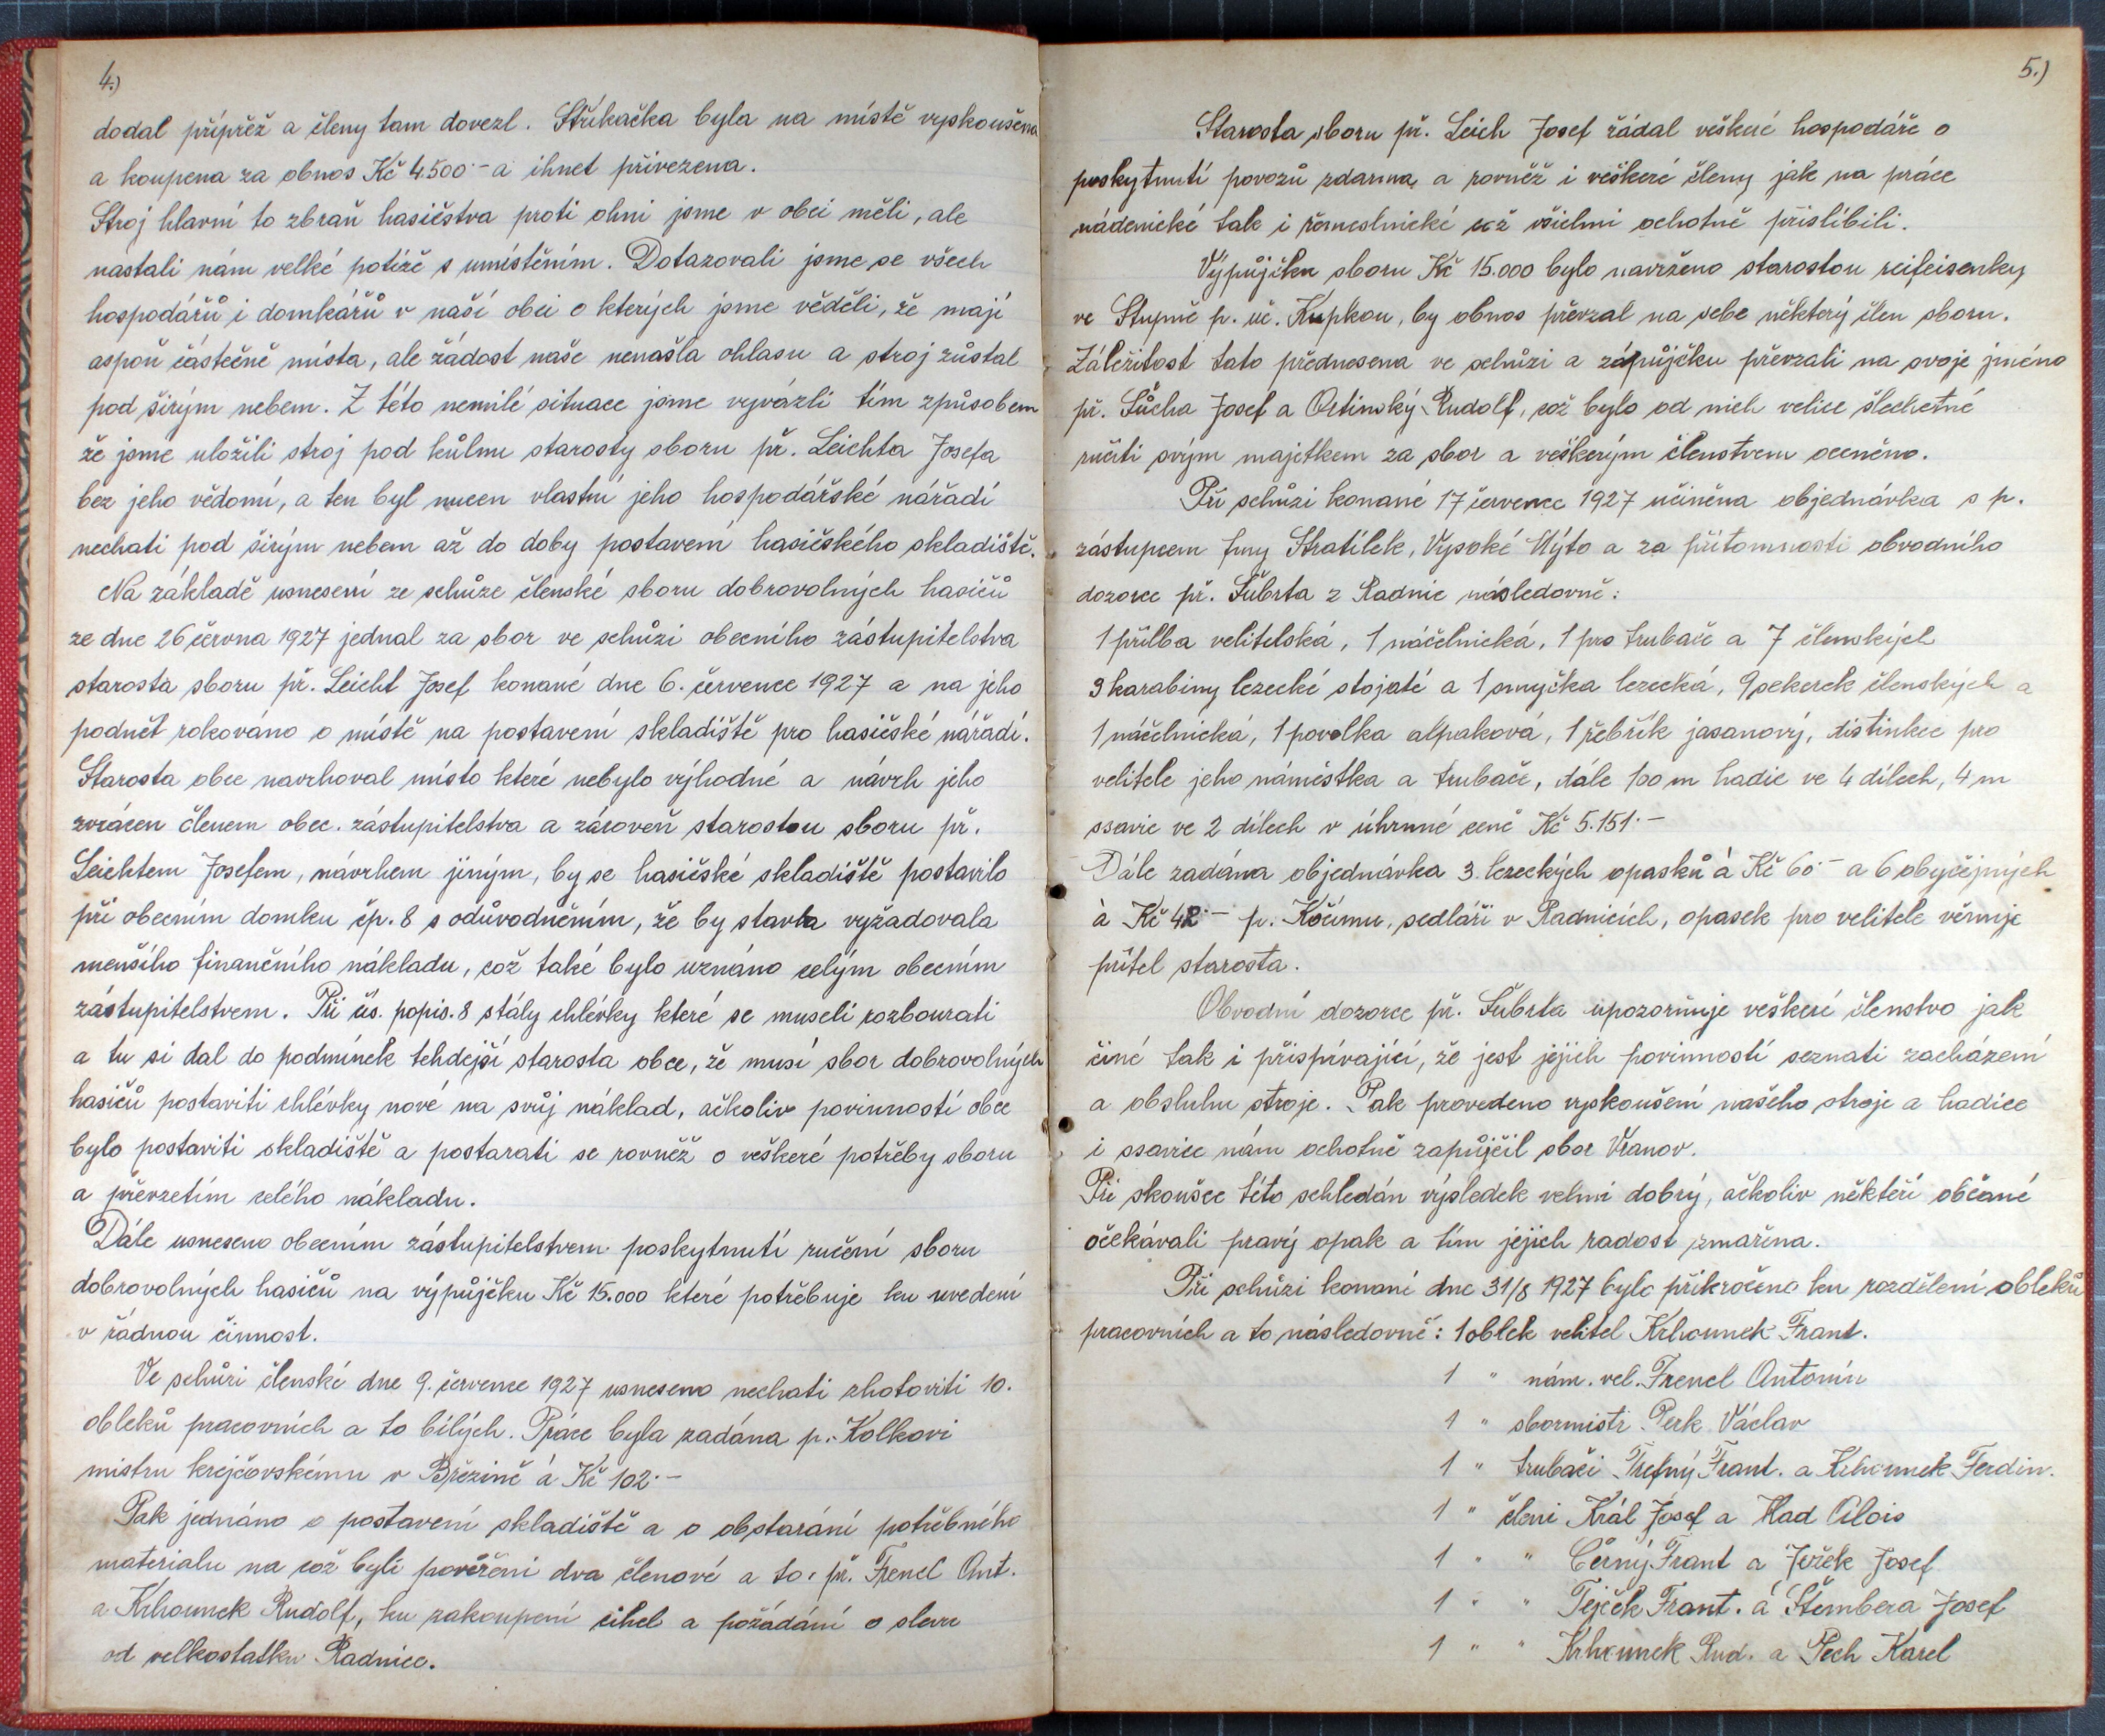 4.)
dodal přípřěž a členy tam dovezl. Stříkačka byla na místě vyskoušena
a koupena za obnos Kč 4.500·- a ihnet přivezena.
Stroj hlavní to zbraň hasičstva proti ohni jsme v obci měli, ale
nastali nám velké potíže s umístěním. Dotazovali jsme se všech
hospodářů i domkářů v naší obci o kterých jsme věděli, že mají
aspoň částečně místa, ale žádost naše nenašla ohlasu a stroj zůstal
pod širým nebem. Z této nemilé situace jsme vyvázli tím způsobem
že jsme uložili stroj pod kůlnu starosty sboru př. Leichta Josefa
bez jeho vědomí, a ten byl nucen vlastní jeho hospodářské nářadí
nechati pod širým nebem až do doby postavení hasičského skladiště.
Na základě usnesení ze schůze členské sboru dobrovolných hasičů
ze dne 26 června 1927 jednal za sbor ve schůzi obecního zástupitelstva
starosta sboru př. Leicht Josef konané dne 6. července 1927 a na jeho
podnět rokováno o místě na postavení skladiště pro hasičské nářadí.
Starosta obce navrhoval místo které nebylo výhodné a návrh jeho
zvrácen členem obec. zástupitelstva a zároveň starostou sboru př.
Leichtem Josefem, návrhem jiným, by se hasičské skladiště postavilo
při obecním domku čp. 8 s odůvodněním, že by stavba vyžadovala
menšího finančního nákladu, což také bylo uznáno celým obecním
zástupitelstvem. Při čís. popis. 8 stály chlévky které se museli rozbourati
a tu si dal do podmínek tehdejší starosta obce, že musí sbor dobrovolných
hasičů postaviti chlévky nové na svůj náklad, ačkoliv povinností obce
bylo postaviti skladiště a postarati se rovněž o veškeré potřeby sboru
a převzetím celého nákladu.
Dále usneseno obecním zástupitelstvem poskytnutí ručení sboru
dobrovolných hasičů na výpůjčku Kč 15.000 které potřebuje ku uvedení
v řádnou činnost.
Ve schůzi členské dne 9. července 1927 usneseno nechati zhotoviti 10.
obleků pracovních a to bílých. Práce byla zadána p. Kolkovi
mistru krejčovskému v Březině á Kč 102·-
Pak jednáno o postavení skladiště a o obstarání potřebného
materialu na což byli pověřeni dva členové a to: př. Frencl Ant.
a Krhounek Rudolf, ku zakoupení cihel a požádání o slevu
od velkostatku Radnice.
5.)
Starosta sboru př. Leich Josef žádal veškeré hospodáře o
poskytnutí povozů zdarma, a rovněž i veškeré členy jak na práce
nádenické tak i řemeslnické což všichni ochotně přislíbili.
Výpůjčku sboru Kč 15.000 bylo navrženo starostou reifeisenky
ve Stupně p. uč. Kupkou, by obnos převzal na sebe některý člen sboru.
Záležitost tato přednesena ve schůzi a zápůjčku převzali na svoje jméno
př. Sůcha Josef a Ortinský Rudolf, což bylo od nich velice šlechetné
ručiti svým majetkem za sbor a veškerým členstvem oceněno.
Při schůzi konané 17 července 1927 učiněna objednávka s p.
zástupcem fmy Stratílek, Vysoké Mýto a za přítomnosti obvodního
dozorce př. Šubrta z Radnic následovně:
1 přílba velitelská, 1 náčelnická, 1 pro trubače a 7 členských
3 karabiny lezecké stojaté a 1 smyčka lezecká, 9 sekerek členských a
1 náčelnická, 1 povolka alpaková, 1 žebřík jasanový, distinkce pro
velitele jeho náměstka a trubače, dále 100 m hadic ve 4 dílech, 4 m
ssavic ve 2 dílech v úhrnné ceně Kč 5.151·-
Dále zadána objednávka 3. lezeckých opasků á Kč 60·- a 6 obyčejných
á Kč 42·- p. Kočímu, sedláři v Radnicích, opasek pro velitele věnuje
přítel starosta.
Obvodní dozorce př. Šubrta upozorňuje veškeré členstvo jak
činé tak i přispívající, že jest jejich povinností seznati zacházení
a obsluhu stroje. Pak provedeno vyskoušení našeho stroje a hadice
i ssavice nám ochotně zapůjčil sbor Vranov.
Při skoušce této schledán výsledek velmi dobrý, ačkoliv někteří občané
očekávali pravý opak a tím jejich radost zmařena.
Při schůzi konaní dne 31/8 1927 bylo přikročeno ku rozdělení obleků
pracovních a to následovně: 1 oblek velitel Krhounek Frant.
1 " nám. vel. Frencl Antonín
1 " sbormistr. Perk Václav
1 " trubači Trefný Frant. a Krhounek Ferdin.
1 " členi Král Josef a Had Alois
1 " " Černý Frant a Ježek Josef
1 " " Tejček Frant. a Štembera Josef
1 " " Krhounek Rud. a Pech Karel